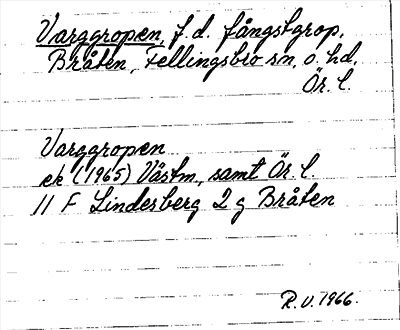 Varggropen, f.d. fångstgrop,
Bråten, Fellingsbro sn, o. hd,
Ör. l.
Varggropen
ek (1965) Västm., samt Ör. l.
11 F Lindesberg 2 g Bråten
R.V. 1966.